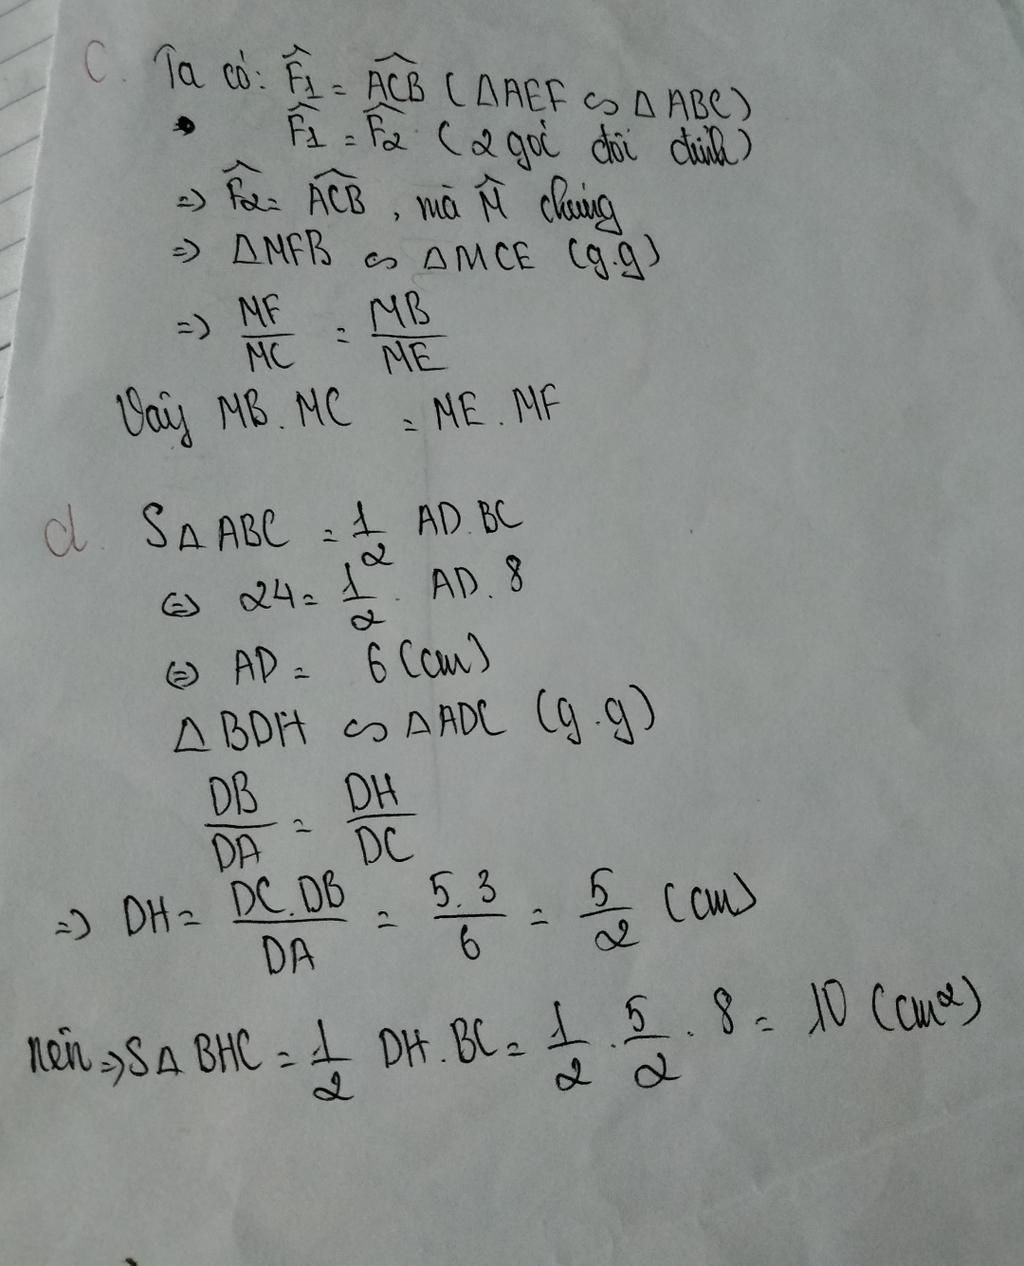 C. Ta có: F̂1 = ACB̂ (ΔAEF ∽ ΔABC)
F̂1 = F̂2 (2 goí đôi đỉnh)
=> F̂2 = ACB̂, mà M̂ chung
=> ΔMFB ∽ ΔMCE (g.g)
=> MF/MC = MB/ME
Vậy MB.MC = ME.MF
d. SΔABC = 1/2 AD.BC
<=> 24 = 1/2 . AD.8
<=> AD = 6 (cm)
ΔBDH ∽ ΔADC (g.g)
DB/DA = DH/DC
=> DH = DC.DB/DA = 5.3/6 = 5/2 (cm)
nên => SΔBHC = 1/2 DH.BC = 1/2 . 5/2 . 8 = 10 (cm²)